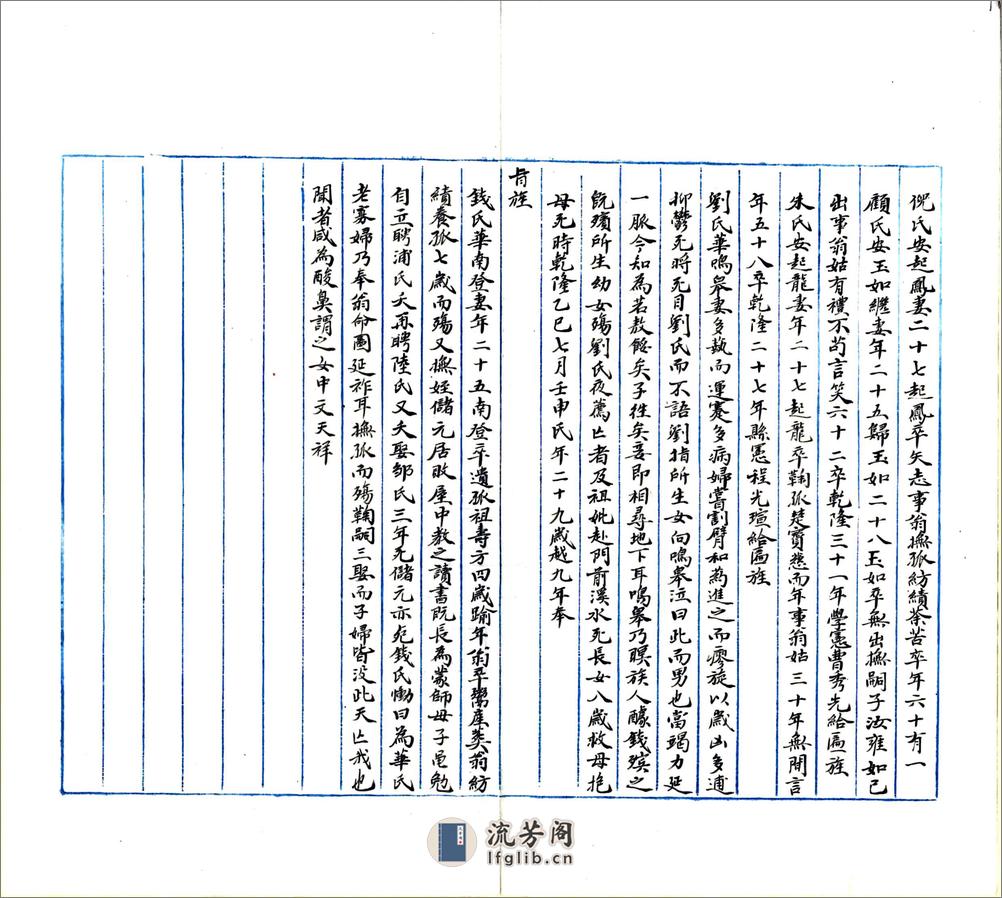 倪氏安起鳳妻二十七起鳳卒矢志事翁撫孤紡績荼苦卒年六十有一
顧氏安玉如繼妻年二十五歸玉如二十八玉如卒無出撫嗣子汝雍如己
出事翁姑有禮不苟言笑六十二卒乾隆三十一年學憲曹秀先給匾旌
朱氏安起龍妻年二十七起龍卒鞠孤楚寶慈而年事翁姑三十年無間言
年五十八卒乾隆二十七年縣憲程光瑄給匾旌
劉氏華鳴皋妻多蓺而運蹇多病婦嘗割臂和藥進之而瘳旋以歲凶多逋
抑鬱死將死目劉氏而不語劉指所生女向鳴皋泣曰此而男也當竭力延
一脈今知為若敖餒矣子往矣妾即相尋地下耳鳴皋乃瞑族人醵錢殯之
既殯所生幼女殤劉氏夜薦亡者及祖妣赴門前溪水死長女八歲救母抱
母死時乾隆乙巳七月壬申氏年二十九歲越九年奉
旨旌
錢氏華南登妻年二十五南登卒遺孤祖壽方四歲踰年翁卒鬻產葬翁紡
績養孤七歲而殤又撫姪儲元居敗屋中教之讀書既長為蒙師母子黽勉
自立聘浦氏夭再聘陸氏又夭娶鄒氏三年死儲元亦死錢氏慟曰為華氏
老寡婦乃奉翁命圖延祚耳撫孤而殤鞠嗣三娶而子婦皆沒此天亡我也
聞者咸為酸鼻謂之女中文天祥
流芳阁
lfglib.cn